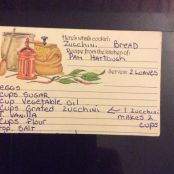 Here's what's cookin':
Zucchini Bread
Recipe from the kitchen of:
Pam Harbough
Serves: 2 Loaves
EGGS
CUPS SUGAR
CUP VEGETABLE OIL
CUPS GRATED ZUCCHINI ← 1 ZUCCHINI
T. VANILLA MAKES 2
CUPS FLOUR CUPS
TSP. SALT